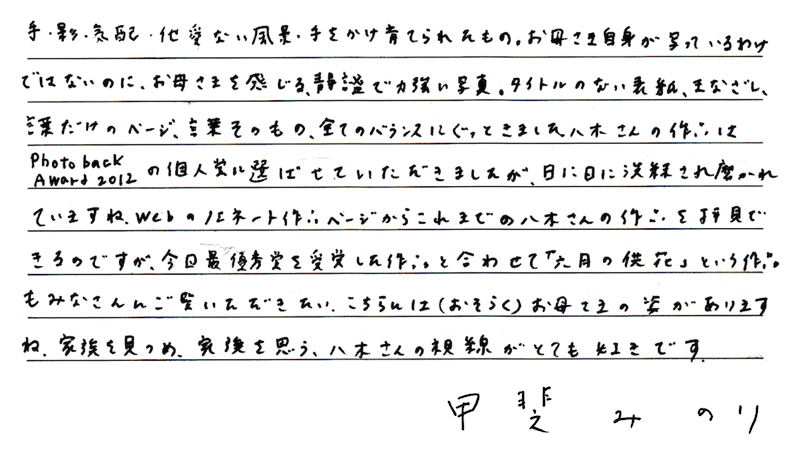 手・影・気配・他愛ない風景・手をかけ育てられたもの。お母さま自身が写っているわけ
ではないのに、お母さまを感じる、静謐で力強い写真。タイトルのない表紙、まなざし、
言葉だけのページ、言葉そのもの、全てのバランスにぐっときました。八木さんの作品は
Photoback
Award 2012 の個人賞に選ばせていただきましたが、日に日に洗練され磨かれ
ていますね。Webのノミネート作品ページからこれまでの八木さんの作品を拝見で
きるのですが、今回最優秀賞を受賞した作品と合わせて「六月の供花」という作品
もみなさんにご覧いただきたい。こちらには(おそらく)お母さまの姿があります
ね。家族を見つめ、家族を思う、八木さんの視線がとても好きです。
甲斐 みのり